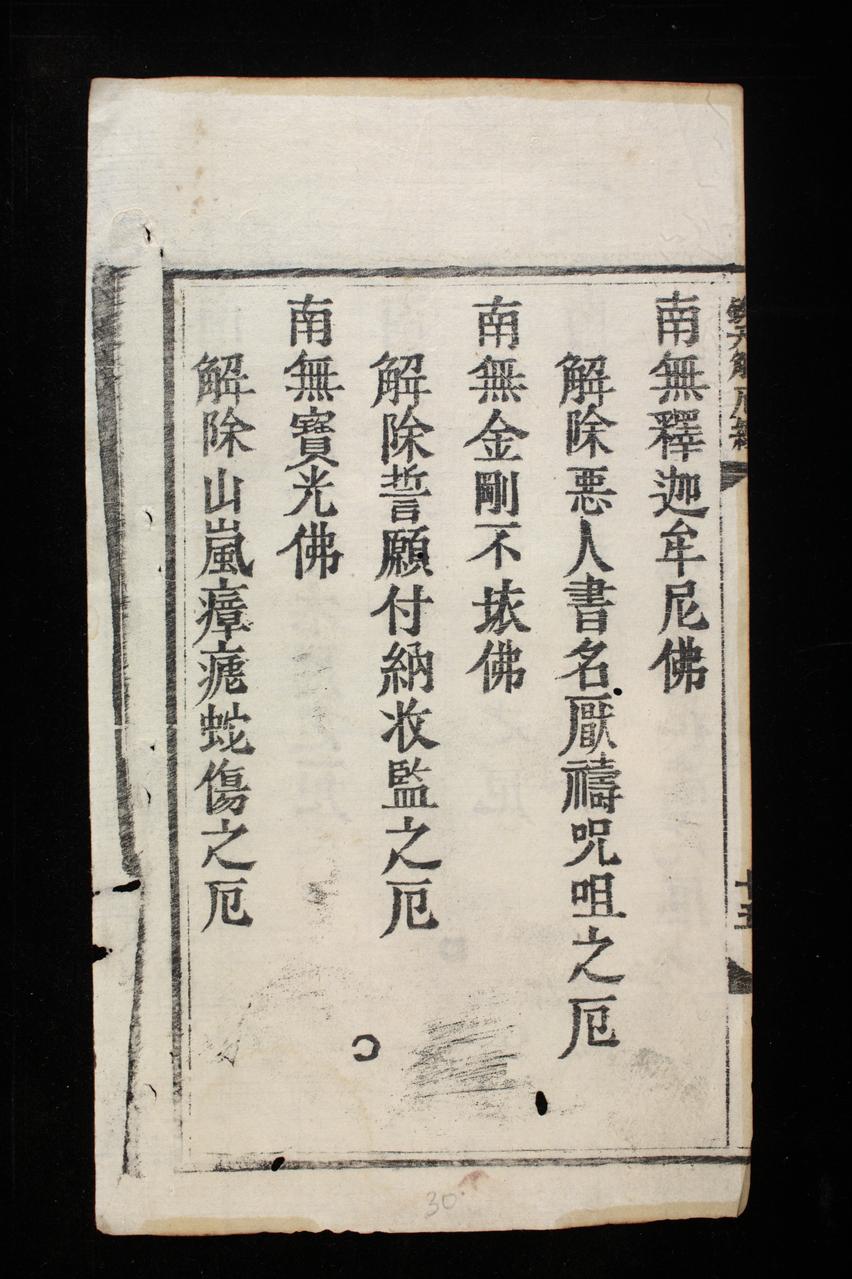 南無釋迦牟尼佛
解除悪人書名厭禱呪咀之厄
南無金剛不㧞佛
解除誓願付納收監之厄
南無寶光佛
解除山嵐瘴瘧蛇傷之厄
30